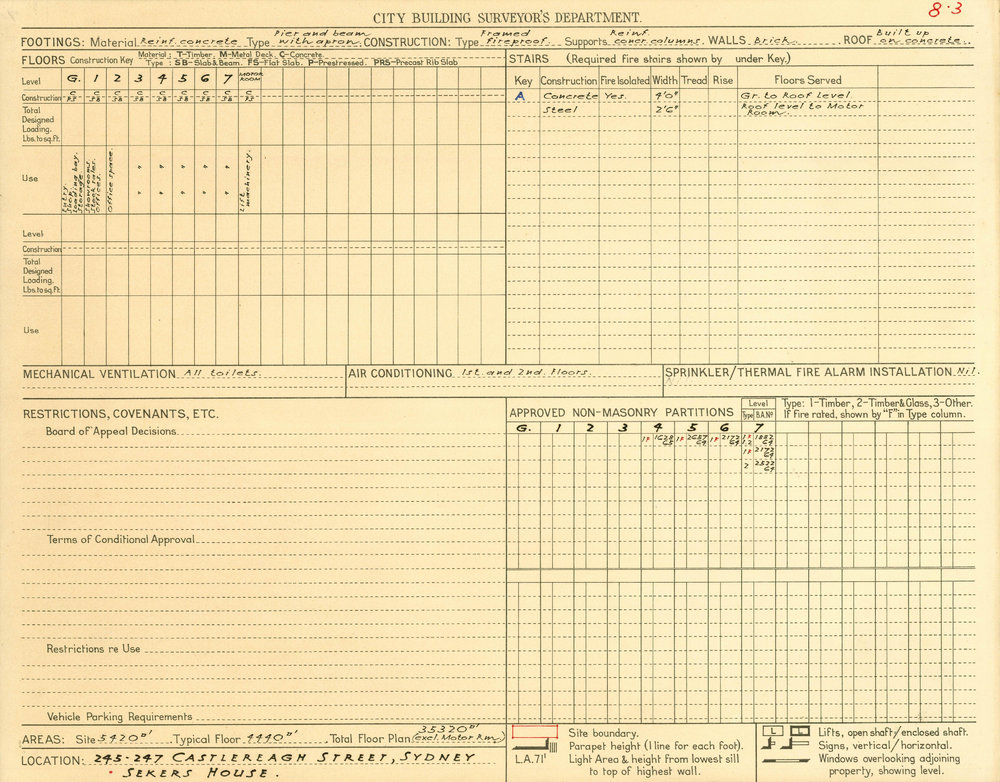 CITY BUILDING SURVEYOR'S DEPARTMENT.
8.3
FOOTINGS: Material Reinf. concrete Type Pier and beam with apron. CONSTRUCTION: Type Framed fireproof Supports Reinf. concr. columns. WALLS Brick. ROOF Built up on concrete.
FLOORS Construction Key Material: T-Timber, M-Metal Deck, C-Concrete.
Type: SB-Slab&Beam. FS-Flat Slab. P-Prestressed. PRS-Precast Rib Slab
Level G. 1 2 3 4 5 6 7 MOTOR ROOM
Construction C C C C C C C C C
FS SB SB SB SB SB SB SB FS
Total Designed Loading. Lbs. to sq. ft.
Use Entry. Shop. Loading bay. Storage Showrooms. Stock sales. Offices. Office space. " " " " " Lift machinery.
" " " " "
Level
Construction
Total Designed Loading. Lbs. to sq. ft.
Use
STAIRS (Required fire stairs shown by under Key.)
Key Construction Fire Isolated Width Tread Rise Floors Served
A Concrete Yes. 4'0" Gr. to Roof Level
Steel 2'6" Roof level to Motor Room.
MECHANICAL VENTILATION All toilets.
AIR CONDITIONING 1st. and 2nd. Floors.
SPRINKLER/THERMAL FIRE ALARM INSTALLATION Nil.
RESTRICTIONS, COVENANTS, ETC.
Board of Appeal Decisions
Terms of Conditional Approval
Restrictions re Use
Vehicle Parking Requirements
APPROVED NON-MASONRY PARTITIONS
Level
Type B.A.Nº
Type: 1-Timber, 2-Timber&Glass, 3-Other.
If fire rated, shown by "F" in Type column.
G. 1 2 3 4 5 6 7
1F 1628 65 1F 2657 64 1F 2172 64 1F 1,2 1852 64
1F 2172 64
2 2532 64
AREAS: Site 5420□' Typical Floor 4440□' Total Floor Plan 35320□' (excl. Motor Rm.)
LOCATION: 245-247 CASTLEREAGH STREET, SYDNEY
• SEKERS HOUSE.
Site boundary.
Parapet height (1 line for each foot).
L.A.71' Light Area & height from lowest sill
to top of highest wall.
L L Lifts, open shaft/enclosed shaft.
Signs, vertical/horizontal.
Windows overlooking adjoining
property, showing level.